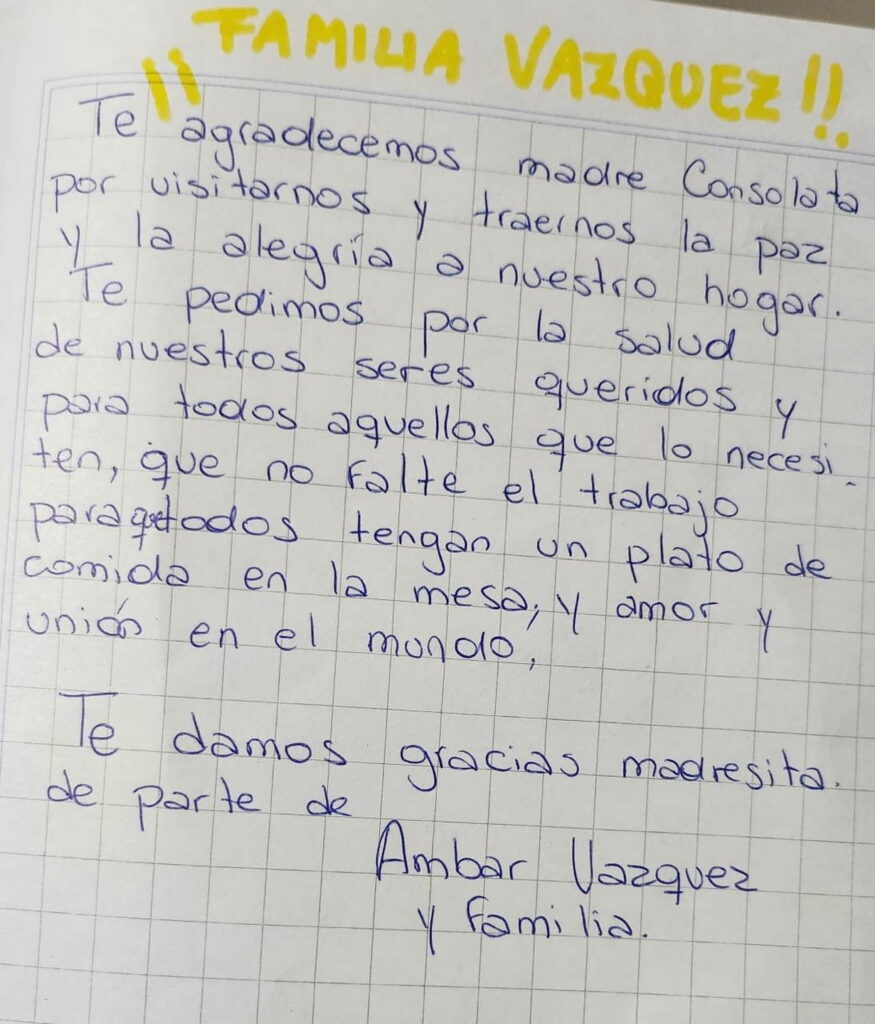 ¡¡FAMILIA VAZQUEZ!!
Te agradecemos madre Consolata
por visitarnos y traernos la paz
y la alegría a nuestro hogar.
Te pedimos por la salud
de nuestros seres queridos y
para todos aquellos que lo necesi-
ten, que no falte el trabajo
para que todos tengan un plato de
comida en la mesa, y amor y
unión en el mundo,
Te damos gracias madresita.
de parte de
Ambar Vazquez
y familia.